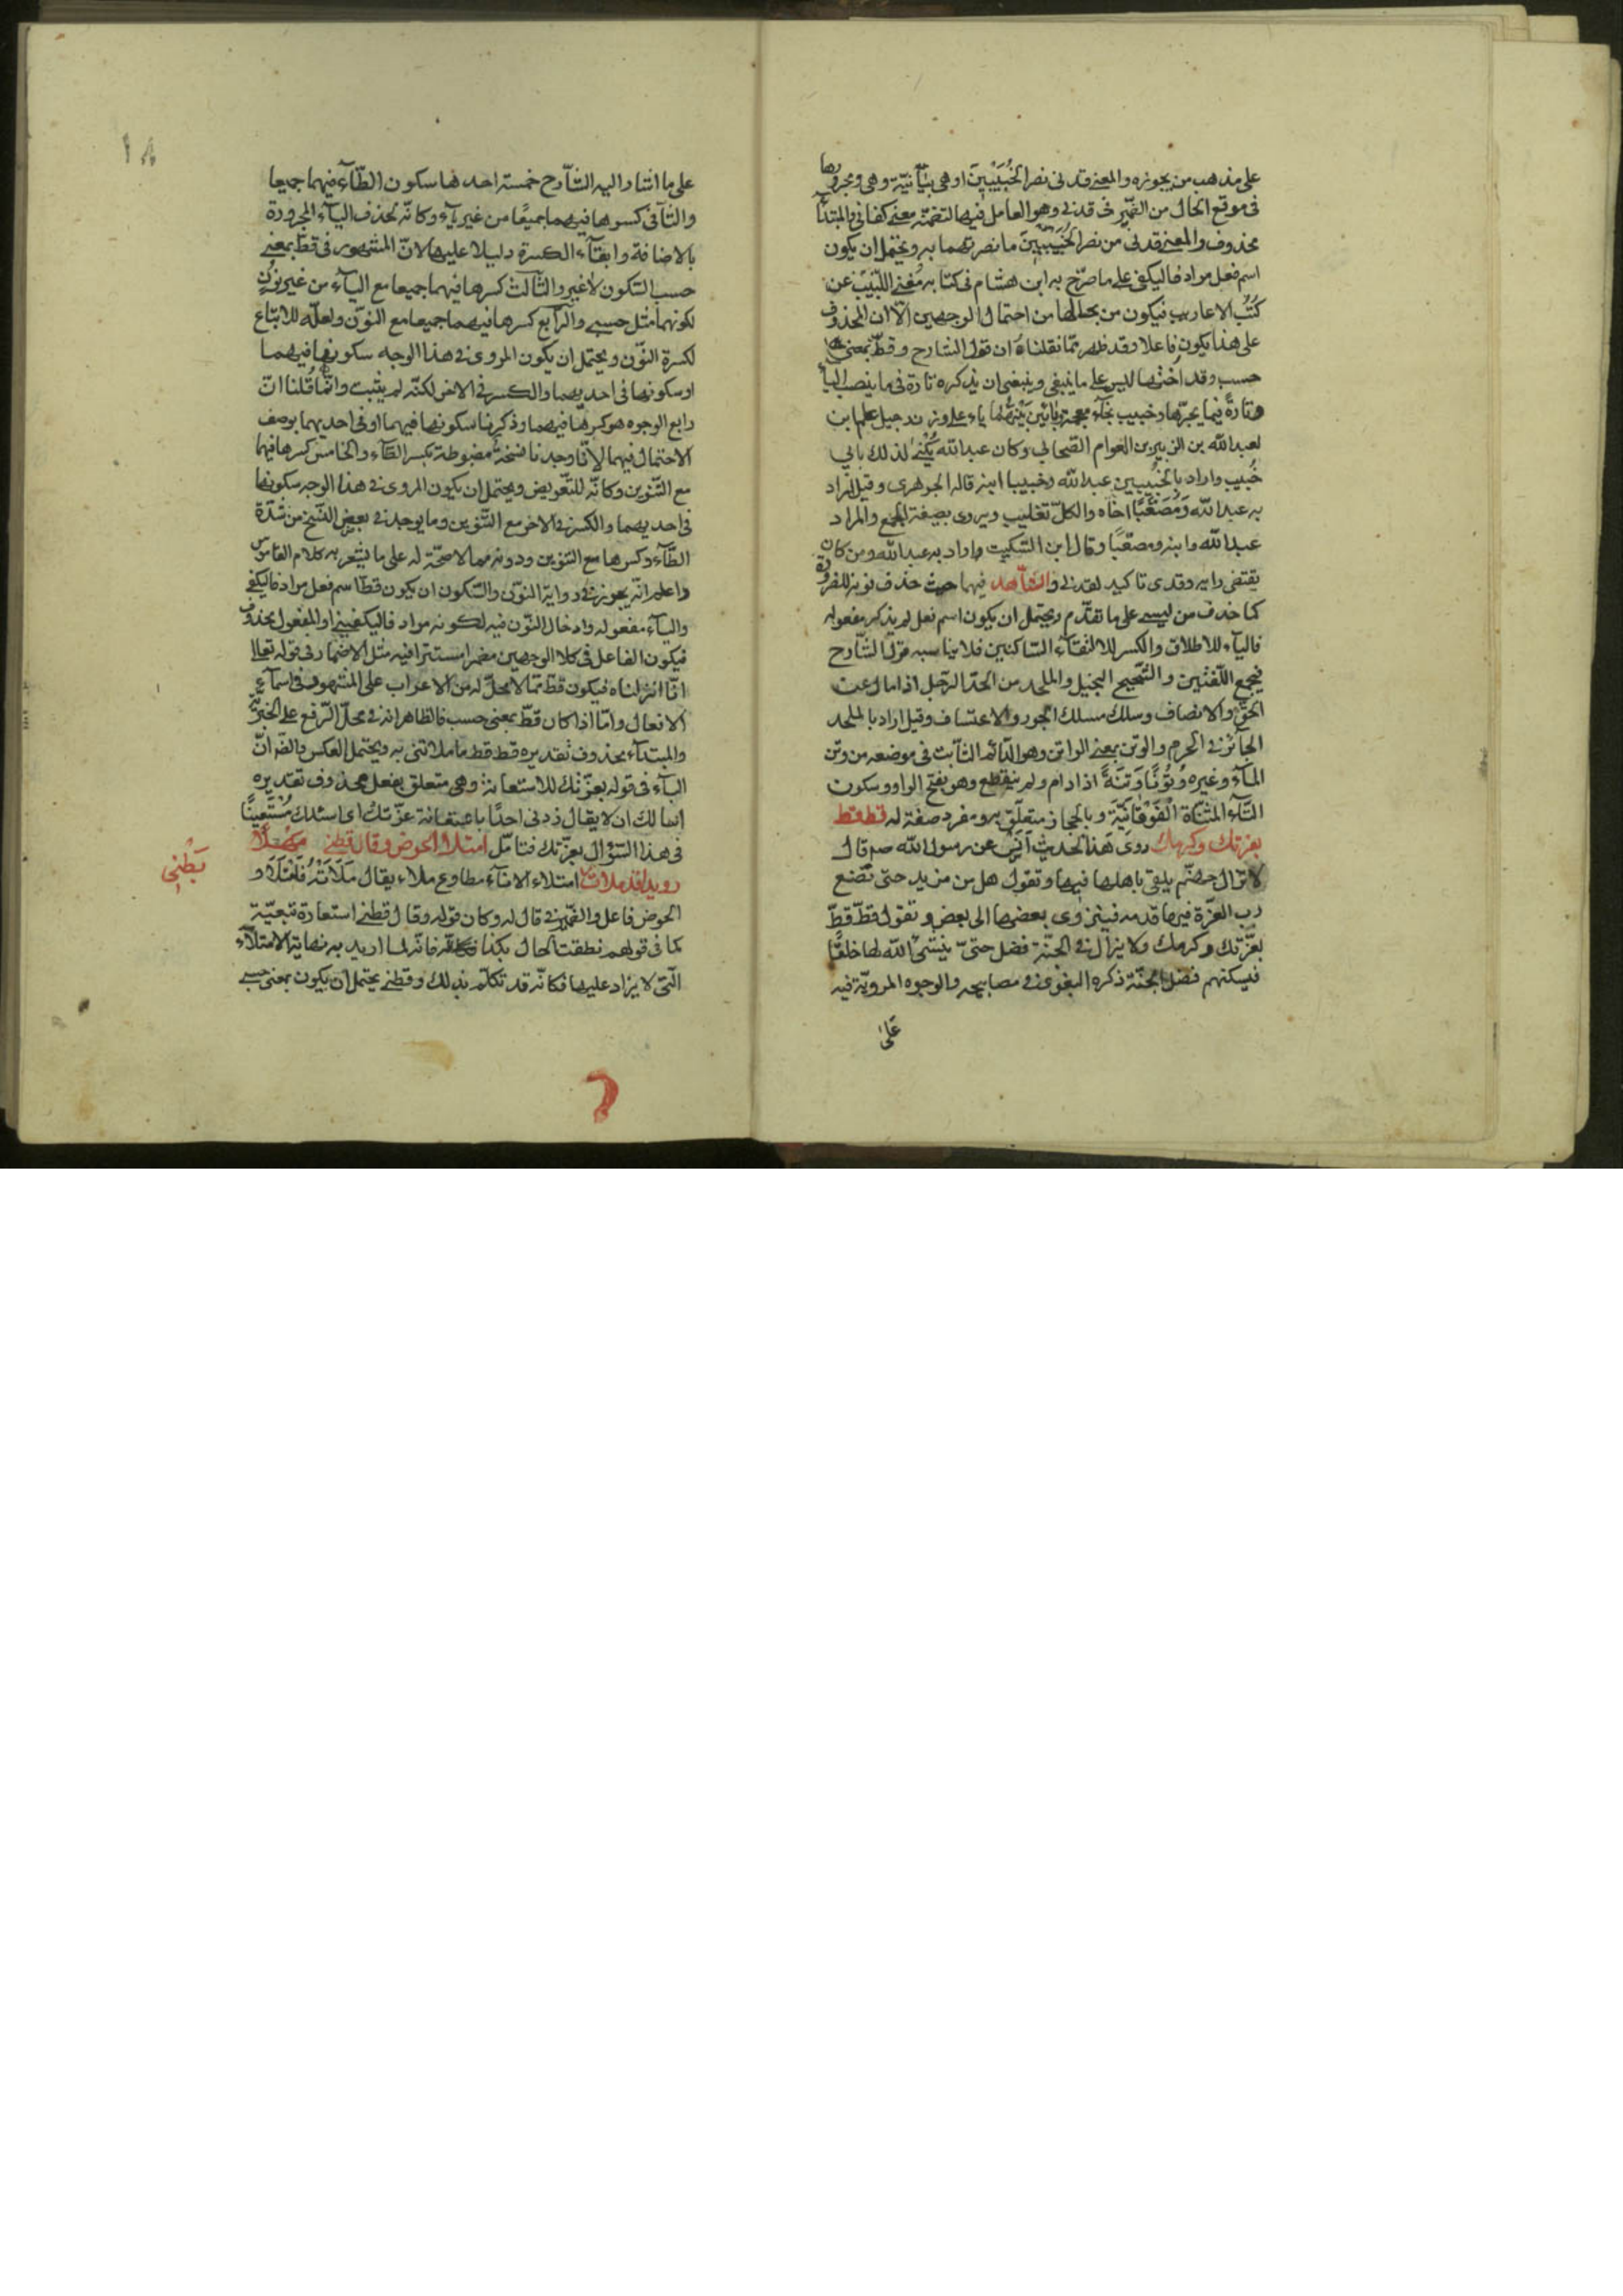 على مذهب من يجوزه والمعنى قدنى نصر الخبيبين او هى بيانية وهى ومجرورها
فى موقع الحال من الضمير فى قدنى وهو العامل فيها لتضمنه معنى كفانى والمبتدأ
محذوف والمعنى قدنى من نصر الخبيبين ما نصرتهما به ويحتمل ان يكون
اسم فعل مرادفا ليكفى على ما صرّح به ابن هشام فى كتابه مغنى اللبيب عن
كتب الاعاريب فيكون من بحالها من احتمال الوجهين الّا ان المحذوف
على هذا يكون فاعلا وقد ظهر ممّا نقلناه ان قول الشارح وقط بمعنى
حسب وقد اختها ليس على ما ينبغى وينبغى ان يذكره تارة فى ما ينصب الياء
وتارةً فيما يجرّها وخبيب بخآء معجمة وبائين بينهما ياء على وزن رجيل علم ابن
لعبد الله بن الزبير بن العوام الصحابي وكان عبد الله يُكْنى لذلك بابي
خُبيب واراد بالخبيبين عبد الله وخبيبا ابنه قاله الجوهرى وقيل اراد
به عبد الله وَمُصْعَبًا اخاه والكلّ تغليب ويروى بصيغة الجمع والمراد
عبد الله وابنه ومصعبًا وقال ابن السّكيت واراد به عبد الله ومن كان
يقتفى رايه وقدى تاكيد لقدنى والشّاهد فيهما حيث حذف نونه للضرورة
كما حذف من ليسى على ما تقدّم ويحتمل ان يكون اسم فعل لم يذكر مفعوله
فاليآء للاطلاق والكسر للالتقآء السّاكنين فلا يناسبه قول الشّارح
فجمع اللّغتين والشّحيح البخيل والملحد من الحد الرّجل اذا مال عن
الحقّ والانصاف وسلك مسلك الجور والاعتساف وقيل اراد بالملحد
الجآئر فى الحرم والوتن بمعنى الواتن وهو الدّائم الثّابت فى موضعه من وتن
المآء وغيره وُتُونًا وَتِنَةً اذا دام ولم ينقطع وهو بفتح الواو وسكون
التّآء المثنّاة الْفَوْقانيّة وبالحجاز متعلّق به ومفرد صفة له قط قط
بعزتك وكرمك روى هذا الحديث اَنَس عن رسول الله صم قال
لا تزال جهنّم يلقى باهلها فيها وتقول هل من مزيد حتى تضع
رب العزّة فيها قدمه فينزوى بعضها الى بعض وتقول قطّ قطّ
بعزّتك وكرمك ولا يزال فى الجنّة فضل حتىّ ينشئ الله لها خلقًا
فيسكنهم فضل الجنّة ذكره البغوى فى مصابيحه والوجوه المرويّة فيه
على
١٨
على ما اشار اليه الشّارح خمسة احدها سكون الطّآء فيهما جميعا
والثّآنى كسرها فيهما جميعًا من غير يآء وكانّه بحذف اليآء المجرورة
بالاضافة وابقآء الكسرة دليلا عليها لانّ المشهور فى قط بمعنى
حسب السّكون لا غير والثّالث كسرها فيهما جميعا مع اليآء من غير نون
لكونهما مثل حسبى والرّابع كسرها فيهما جميعا مع النّون ولعلّه للاتباع
لكسرة النّون ويحتمل ان يكون المروى فى هذا الوجه سكونها فيهما
او سكونها فى احديهما والكسر فى الاخر لكنّه لم يثبت وانّما قُلنا انّ
رابع الوجوه هو كسرها فيهما وذكرنا سكونها فيهما او فى احديهما بوصف
الاحتمال فيهما لانّا وجدنا نسخة مضبوطة بكسر الطّآء والخامس كسرها فيهما
مع التّنوين وكانّه للتّعويض ويحتمل ان يكون المروى فى هذا الوجه سكونها
فى احديهما والكسر فى الاخر مع التّنوين وما يوجد فى بعض النّسخ من شدّة
الطّآء وكسرها مع التنوين ودونه مما لا صحّة له على ما يشعر به كلام القاموس
واعلم انّه يجوز فى رواية النّون والسّكون ان يكون قط اسم فعل مرادفا ليكفى
واليآء مفعوله وادخال النّون فيه لكونه مرادفا ليكفينى او المفعول محذوف
فيكون الفاعل فى كلا الوجهين مضمرا مستترا فيه مثل الاضمار فى قوله تعالى
انّا انزلناه فيكون قط ممّا لا محلّ له من الاعراب على المشهور فى اسمآء
الافعال وامّا اذا كان قطّ بمعنى حسب فالظاهر انه فى محلّ الرّفع على الخبريّة
والمبتدآء محذوف تقديره قط قط ما ملاتنى به ويحتمل العكس والظّ انّ
البآء فى قوله بعزّتك للاستعانة وهى متعلق بفعل محذوف تقديره
اسالك ان لا يقال زدنى احدًا باعتقانة عزّتك اى اسئلك مُسْتَعِينًا
فى هذا السّؤال بعزّتك فتامّل امتلأ الحوض وقال قطنى مهلًا
رويدا قد ملات امتلاء الانآء مطاوع ملاء يقال مَلَاَتْهُ فَامْتَلَاَ و
بَطْنِى
الحوض فاعل والضّمير فى قال له وكان قوله وقال قطنى استعارة تبعيّة
كما فى قولهم نطقت الحال بكذا فانّه لما اريد به نهاية الامتلآء
الّتى لا يزاد عليها فكانّه قد تكلّم بذلك وقطنى يحتمل ان يكون بمعنى حسبى